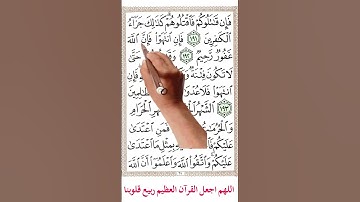 فَإِن قَـٰتَلُوكُمْ فَٱقْتُلُوهُمْ كَذَٰلِكَ جَزَآءُ
ٱلْكَـٰفِرِينَ ١٩١ فَإِنِ ٱنتَهَوْا۟ فَإِنَّ ٱللَّهَ
غَفُورٌ رَّحِيمٌ ١٩٢ حَتَّىٰ
لَا تَكُونَ فِتْنَةٌ
ٱنتَهَوْا۟ فَلَا
١٩٣ ٱلشَّهْرُ ٱلْحَرَامِ
وَٱلْحُرُمَـٰتُ فَمَنِ ٱعْتَدَىٰ
عَلَيْكُمْ بِمِثْلِ مَا ٱعْتَدَىٰ
عَلَيْكُمْ وَٱتَّقُوا۟ ٱللَّهَ وَٱعْلَمُوٓا۟ أَنَّ ٱللَّهَ
اللهم اجعل القرآن العظيم ربيع قلوبنا